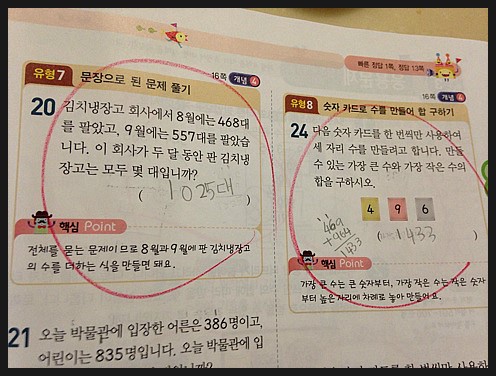 빠른 정답 1쪽, 정답 13쪽
유형 7 문장으로 된 문제 풀기
16쪽 개념 4
20 김치냉장고 회사에서 8월에는 468대
를 팔았고, 9월에는 557대를 팔았습
니다. 이 회사가 두 달 동안 판 김치냉
장고는 모두 몇 대입니까?
( 1025대 )
핵심 Point
전체를 묻는 문제이므로 8월과 9월에 판 김치냉장고
의 수를 더하는 식을 만들면 돼요.
21 오늘 박물관에 입장한 어른은 386명이고,
어린이는 835명입니다. 오늘 박물관에 입
16쪽 개념 4
유형 8 숫자 카드로 수를 만들어 합 구하기
24 다음 숫자 카드를 한 번씩만 사용하여
세 자리 수를 만들려고 합니다. 만들
수 있는 가장 큰 수와 가장 작은 수의
합을 구하시오.
4 9 6
469
+964
1433
( 1433 )
핵심 Point
가장 큰 수는 큰 숫자부터, 가장 작은 수는 작은 숫자
부터 높은 자리에 차례로 놓아 만들어요.